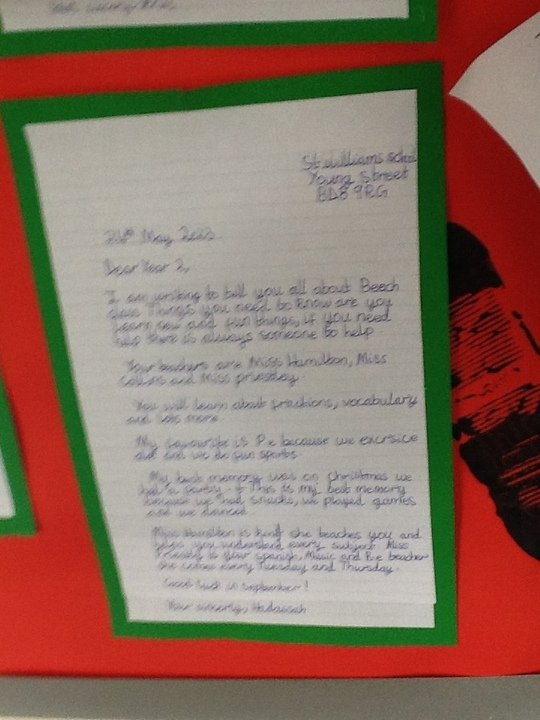 St williams school
Young Street
BD8 9RG
May 2023
Dear Year 2,
I am writing to tell you all about Beech
class Things you need to know are you
learn new and fun things, if you need
help there is always someone to help
Your teachers are Miss Hamilton, Miss
Collins and Miss priestley
You will learn about fractions, vocabulary
and lots more
My favourite is P.e because we excrsice
and we do fun sports
My best memory was on Christmas we
had a party This is my best memory
because we had snacks, we played games
and we danced
Miss Hamilton is kind she teaches you and
you understand every subject Miss
Priestly is your spanish, Music and P.e teacher
she comes every Tuesday and Thursday.
Good luck in September!
Your sincerly, Hadassah